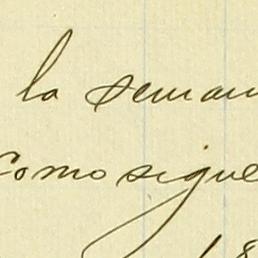 la seman
como sigue